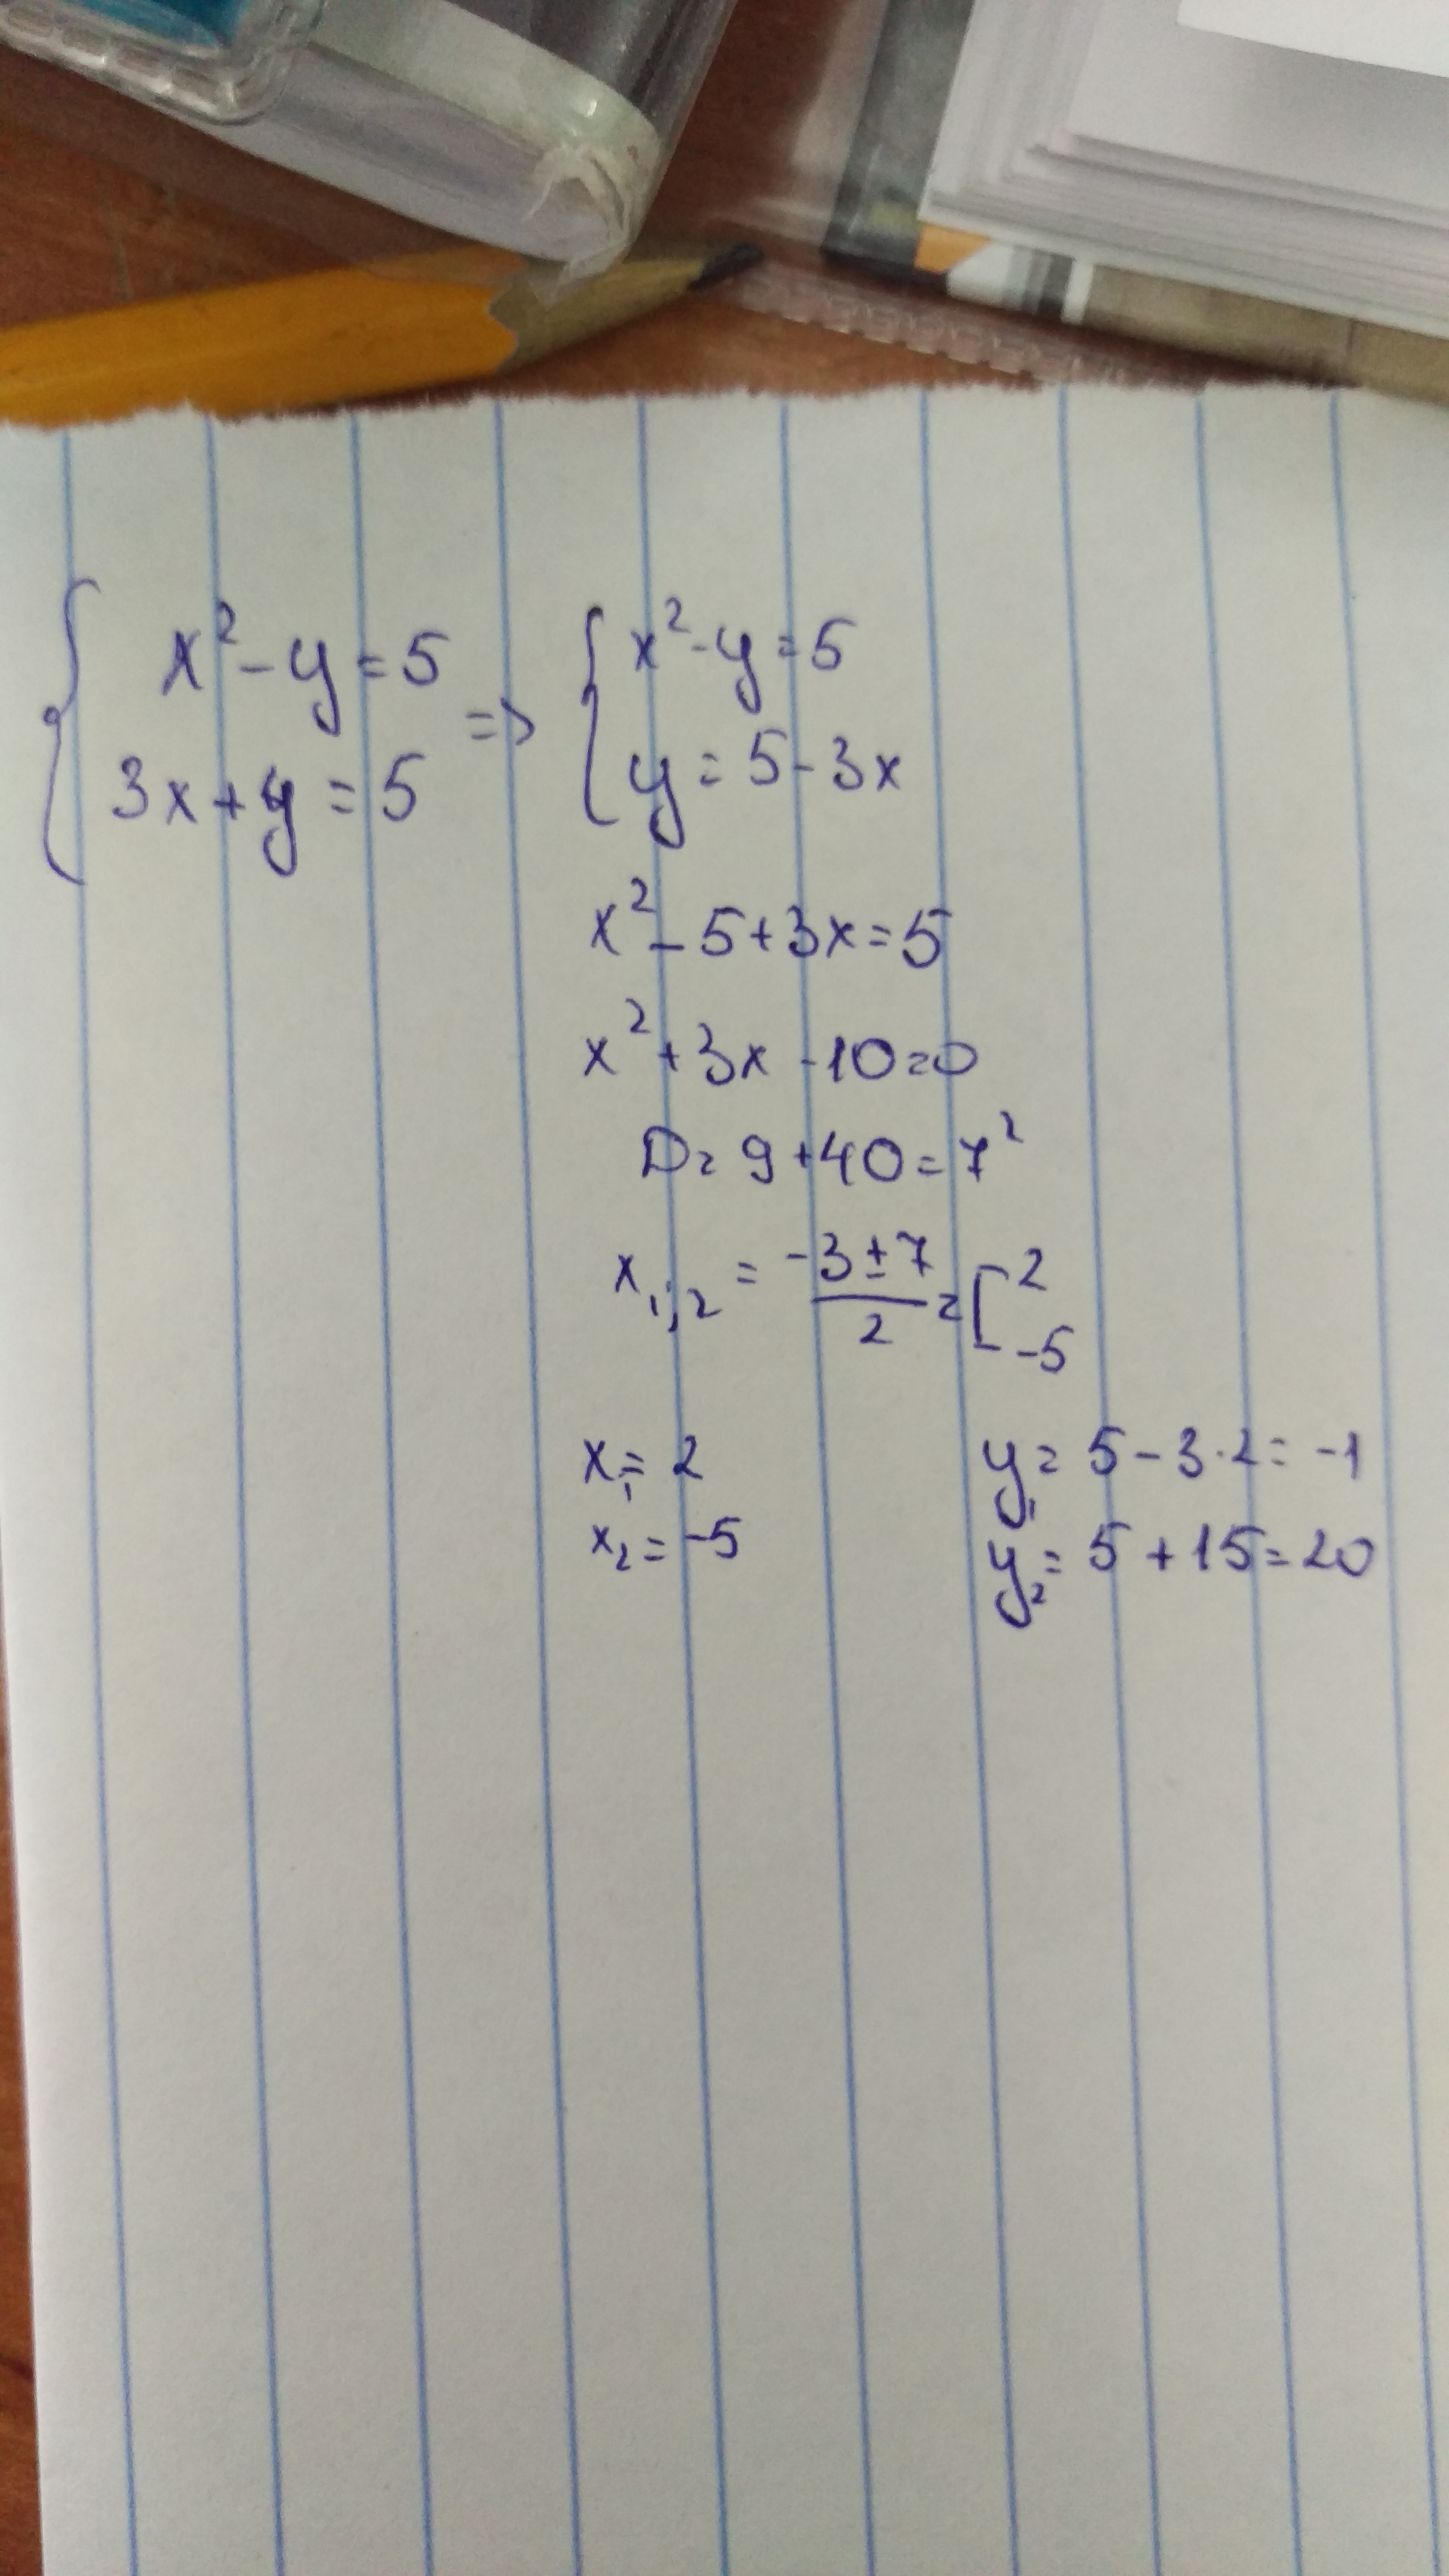 { x² - y = 5 => { x² - y = 5
3x + y = 5 y = 5 - 3x
x² - 5 + 3x = 5
x² + 3x - 10 = 0
D = 9 + 40 = 7²
x₁;₂ = (-3 ± 7)/2 = [ 2 -5
x₁ = 2 y₁ = 5 - 3·2 = -1
x₂ = -5 y₂ = 5 + 15 = 20